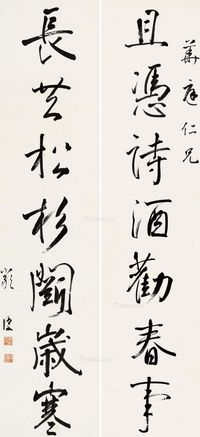 華庭仁兄
且憑詩酒勸春事
長共松杉鬭歲寒